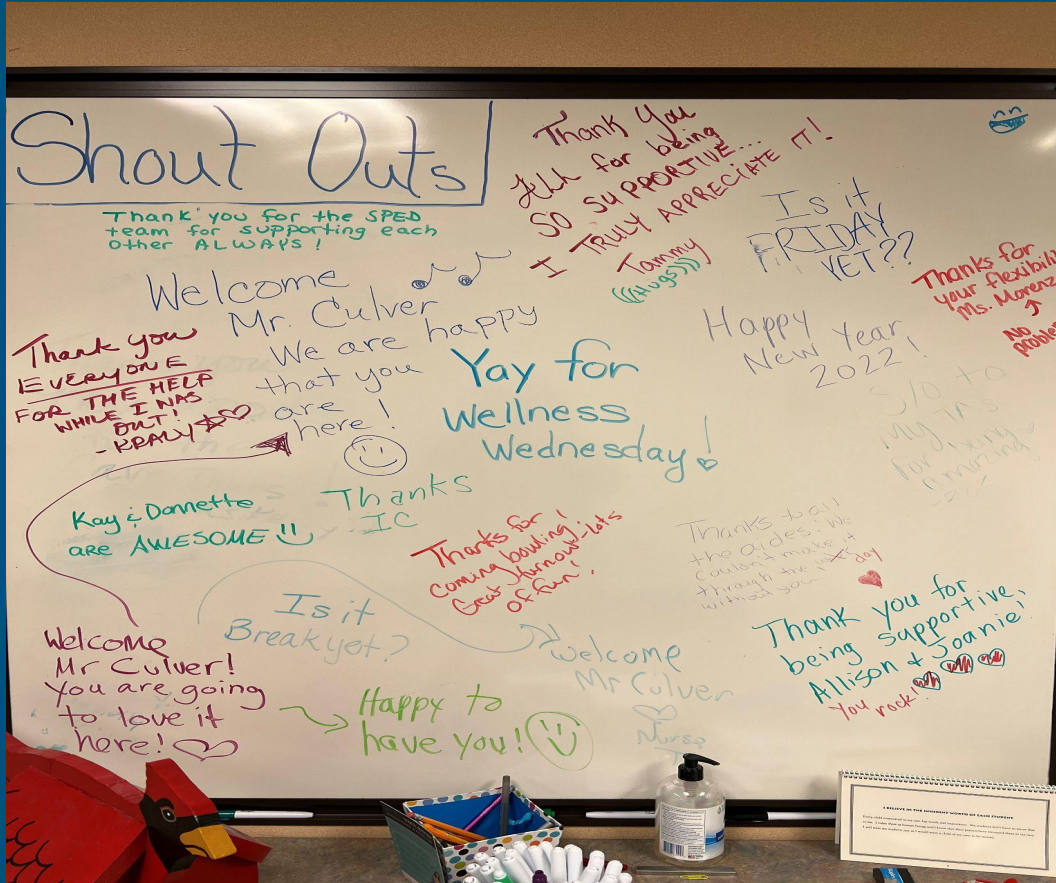 Shout Outs
Thank you for the SPED
team for supporting each
other ALWAYS!
Thank You
All for being
SO SUPPORTIVE...
I TRULY APPRECIATE IT!
Tammy
(((Hugs)))
Is it
FRIDAY
YET??
Thanks for
your flexibili
Ms. Morenz
No
proble
Welcome
Mr. Culver
We are happy
that you
are
here!
Thank you
EVERYONE
FOR THE HELP
WHILE I WAS
OUT!
- KRALY
Yay for
Wellness
Wednesday!
Happy
New Year
2022!
S/o to
My TA's
for being
Amazing
Kay & Donnette
are AWESOME
Thanks
IC
Thanks for
coming bowling!
Great turnout-lots
of fun!
Thanks to all
the aides! We
couldn't make it
through the day
without you!
Thank you for
being supportive,
Allison & Joanie!
You rock!
Is it
Break yet?
Welcome
Mr Culver
Nurse
Welcome
Mr Culver!
You are going
to love it
here!
Happy to
have you!
I BELIEVE IN THE INHERENT WORTH OF EACH STUDENT